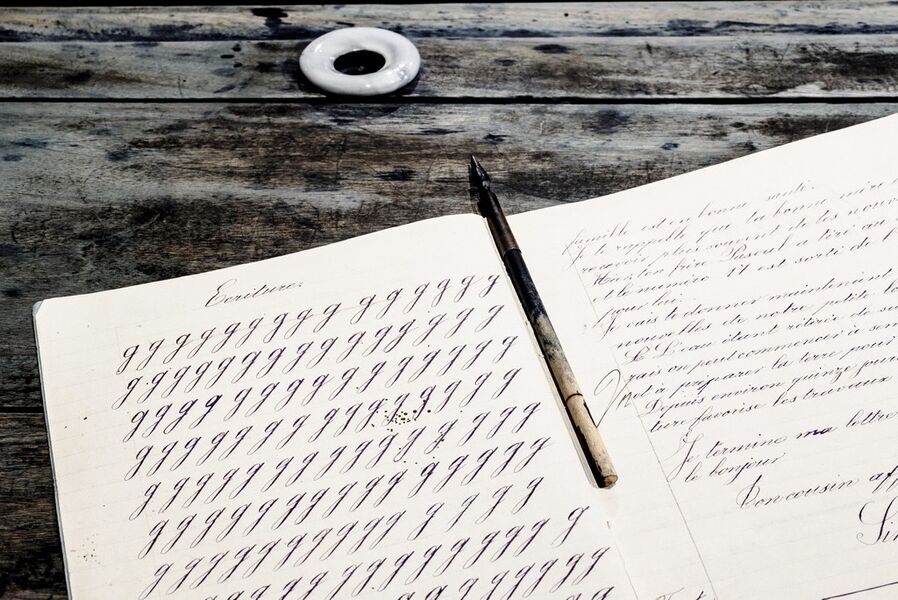 Ecriture.
g g g g g g g g g g g g g g g
g g g g g g g g g g g g g g g g
g g g g g g g g g g g g g g g g
g g g g g g g g g g g g g g g g
g g g g g g g g g g g g g g g g
g g g g g g g g g g g g g g g g
g g g g g g g g g g g g g g g
g g g g g g g g g g g g g g g g
famille est en bonne santé.
Je te rappelle que ta bonne mère
recevoir plus souvent de tes nouv
ton frère Pascal a tiré au
et le numéro 17 est sorti de l'
pour lui.
Je vais te donner maintenant
nouvelles de notre petite
L'eau étant retirée de
on peut commencer à
à préparer la terre pour
Depuis environ quinze jours
favorise les travaux
Je termine ma lettre
le bonjour
Ton cousin aff